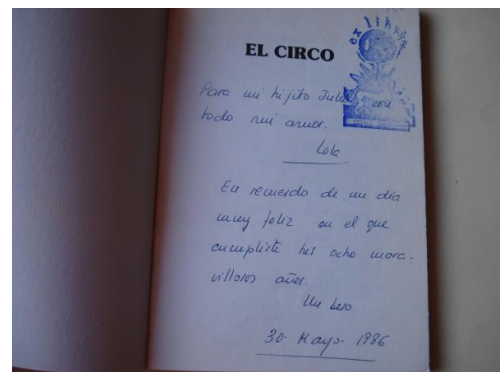 ex libris
EL CIRCO
Para mi hijito Julio con
todo mi amor.
Lola
En recuerdo de un día
muy feliz en el que
cumpliste tus ocho mara-
villosos años.
Un beso
30- Mayo- 1986